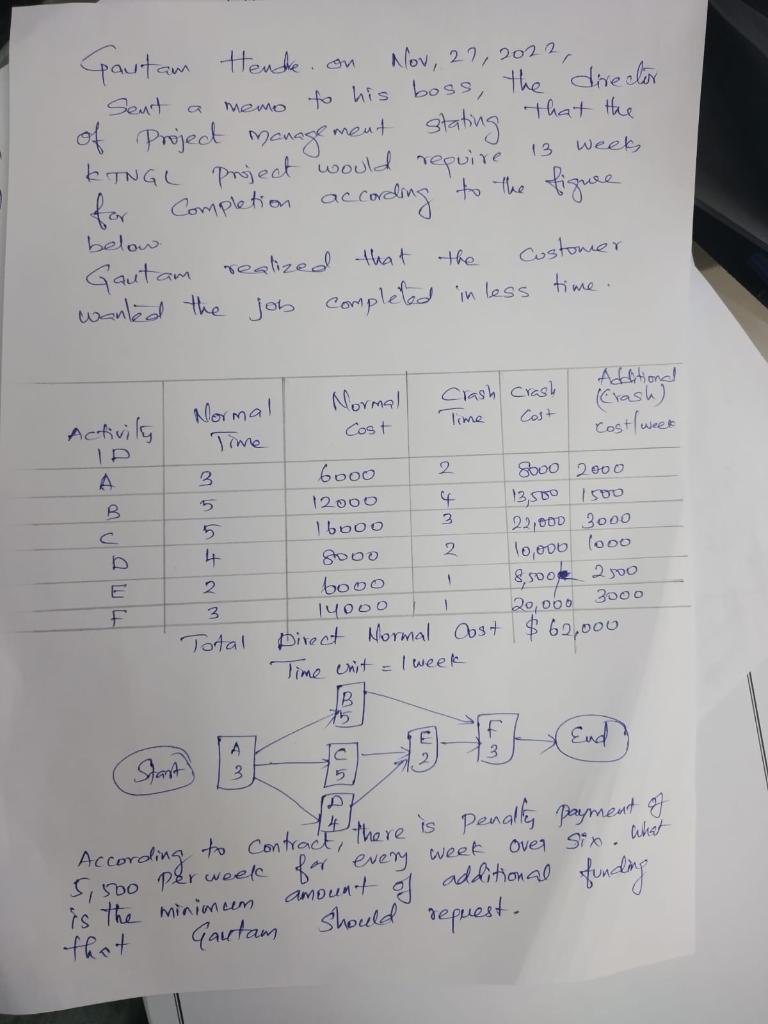 Gautam Hende. on Nov, 27, 2022,
Sent a memo to his boss, the director
of Project management stating that the
KTNGL project would require 13 weeks
for Completion according to the figure
below.
Gautam realized that the customer
wanted the job completed in less time.
Activity ID Normal Time Normal Cost Crash Time Crash Cost Additional (Crash) Cost/week
A 3 6000 2 8000 2000
B 5 12000 4 13,500 1500
C 5 16000 3 22,000 3000
D 4 8000 2 10,000 1000
E 2 6000 1 8,500 2500
F 3 14000 1 20,000 3000
Total Direct Normal Cost $ 62,000
Time unit = 1 week
B
5
Start
A
3
C
5
E
2
F
3
End
D
4
According to Contract, there is Penalty payment of
5,500 per week for every week over Six. what
is the minimum amount of additional funding
that Gautam Should request.